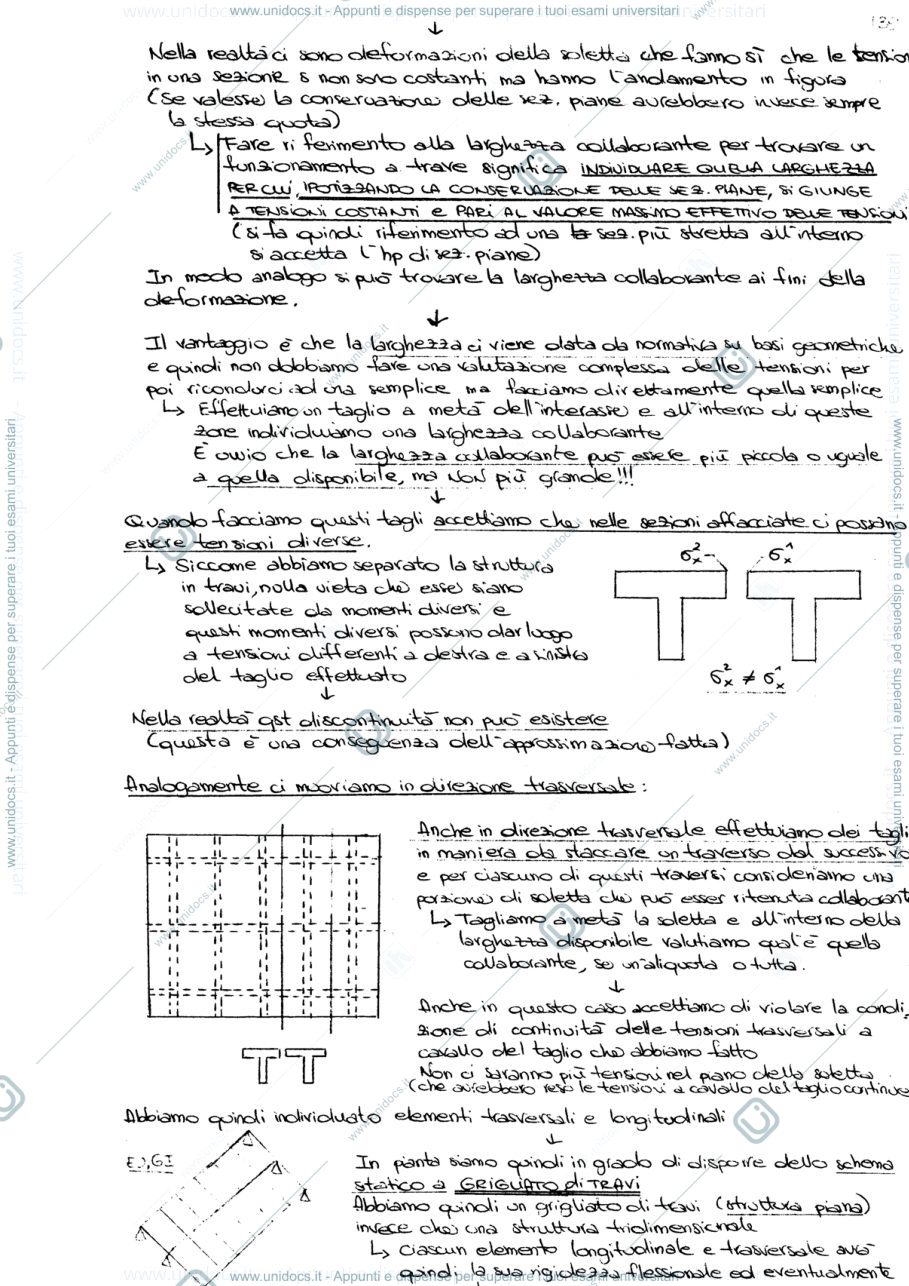 www.unidocs.it - Appunti e dispense per superare i tuoi esami universitari
138
Nella realtà ci sono deformazioni della soletta che fanno sì che le tension
in una sezione s non sono costanti ma hanno l'andamento in figura
(Se valesse la conservazione delle sez. piane avrebbero invece sempre
la stessa quota)
↳ Fare riferimento alla larghezza collaborante per trovare un
funzionamento a trave significa INDIVIDUARE QUELLA LARGHEZZA
PER CUI, IPOTIZZANDO LA CONSERVAZIONE DELLE SEZ. PIANE, SI GIUNGE
A TENSIONI COSTANTI E PARI AL VALORE MASSIMO EFFETTIVO DELLE TENSIONI
(si fa quindi riferimento ad una sez. più stretta all'interno
si accetta l'hp di sez. piane)
In modo analogo si può trovare la larghezza collaborante ai fini della
deformazione.
Il vantaggio è che la larghezza ci viene data da normativa su basi geometriche
e quindi non dobbiamo fare una valutazione complessa delle tensioni per
poi ricondurci ad una semplice ma facciamo direttamente quella semplice
↳ Effettuiamo un taglio a metà dell'interasse e all'interno di queste
zone individuiamo una larghezza collaborante
È ovvio che la larghezza collaborante può essere più piccola o uguale
a quella disponibile, ma NON più grande!!!
Quando facciamo questi tagli accettiamo che nelle sezioni affacciate ci possano
essere tensioni diverse.
↳ Siccome abbiamo separato la struttura
in travi, nulla vieta che esse siano
sollecitate da momenti diversi e
questi momenti diversi possono dar luogo
a tensioni differenti a destra e a sinistra
del taglio effettuato
σx² σx¹
σx² ≠ σx¹
Nella realtà qst discontinuità non può esistere
(questa è una conseguenza dell'approssimazione fatta)
Analogamente ci muoviamo in direzione trasversale:
Anche in direzione trasversale effettuiamo dei tagli
in maniera da staccare un traverso dal successivo
e per ciascuno di questi traversi consideriamo una
porzione di soletta che può esser ritenuta collaborant
↳ Tagliamo a metà la soletta e all'interno della
larghezza disponibile valutiamo qual è quella
collaborante, se un'aliquota o tutta.
Anche in questo caso accettiamo di violare la condi-
zione di continuità delle tensioni trasversali a
cavallo del taglio che abbiamo fatto
Non ci saranno più tensioni nel piano della soletta
(che avrebbero reso le tensioni a cavallo del taglio continue
Abbiamo quindi individuato elementi trasversali e longitudinali
EJ, GI
In pianta siamo quindi in grado di disporre dello schema
statico a GRIGLIATO di TRAVI
Abbiamo quindi un grigliato di travi (struttura piana)
invece che una struttura tridimensionale
↳ Ciascun elemento longitudinale e trasversale avrà
quindi la sua rigidezza flessionale ed eventualmente
www.unidocs.it - Appunti e dispense per superare i tuoi esami universitari